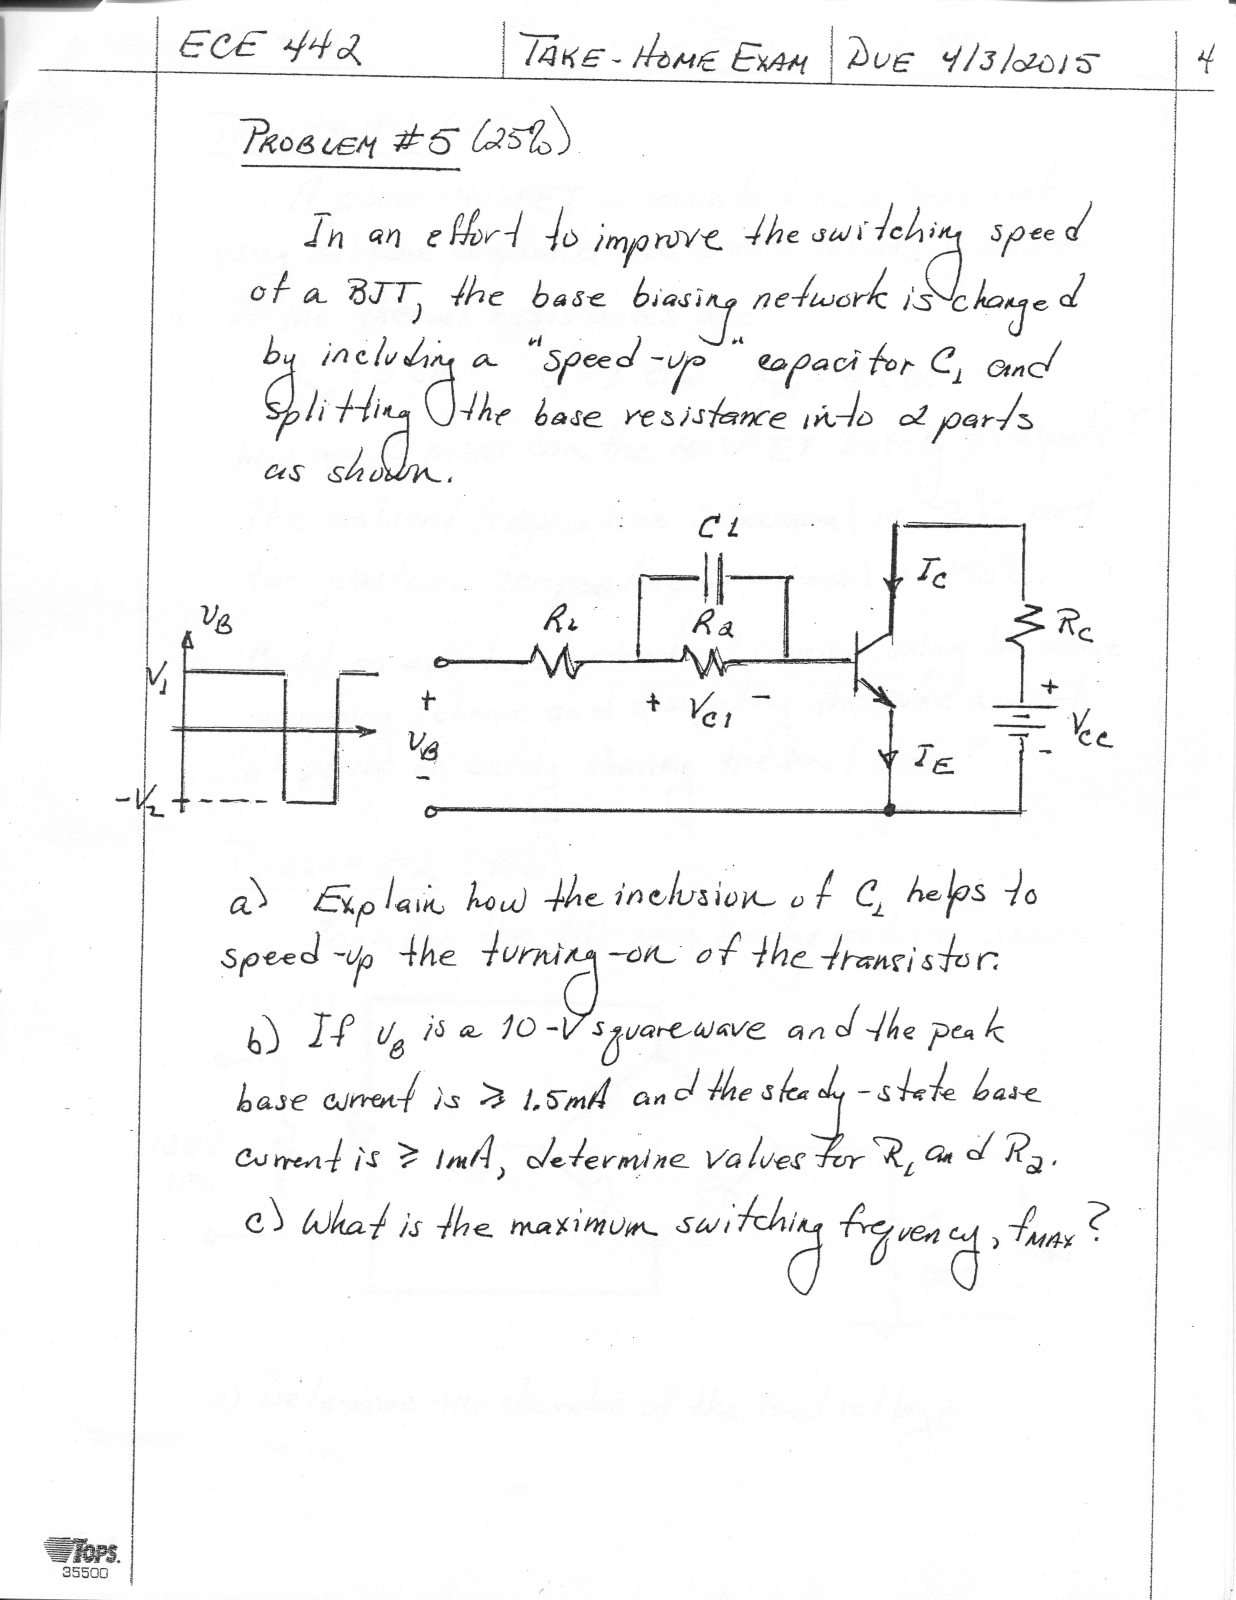 ECE 442 TAKE-HOME EXAM DUE 4/3/2015 4
PROBLEM #5 (25%)
In an effort to improve the switching speed
of a BJT, the base biasing network is changed
by including a "speed-up" capacitor C1 and
splitting the base resistance into 2 parts
as shown.
C1
IC
VB
R1
R2
RC
V1
+
+ VC1 -
+
VB
VCC
-
-
IE
-V2
a) Explain how the inclusion of C1 helps to
speed-up the turning-on of the transistor.
b) If VB is a 10-V square wave and the peak
base current is ≥ 1.5mA and the steady-state base
current is ≥ 1mA, determine values for R1 and R2.
c) What is the maximum switching frequency, fMAX?
TOPS.
35500